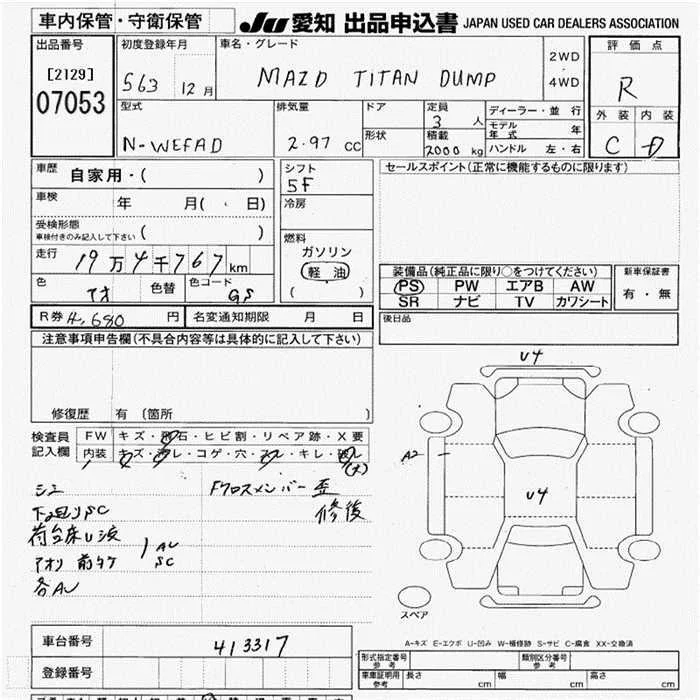 車内保管・守衛保管
JU 愛知 出品申込書 JAPAN USED CAR DEALERS ASSOCIATION
出品番号
[2129]
07053
初度登録年月
S63 12月
車名・グレード
MAZD TITAN DUMP
2WD
・
4WD
評価点
R
外装 内装
C D
型式
N-WEFAD
排気量
2.97 CC
ドア
形状
定員
3 人
積載
2000 kg
ディーラー・並行
モデル年式 年
ハンドル 左・右
車歴
自家用・( )
車検
年 月( . 日)
受検形態
車検付きのみ記入して下さい ( )
走行
19万4千767km
色
アオ
色替
色コード
GS
シフト
5F
冷房
燃料
ガソリン
軽油
( )
セールスポイント(正常に機能するものに限ります)
装備品(純正品に限り○をつけてください)
PS PW エアB AW
SR ナビ TV カワシート
新車保証書
有・無
R券 4,680 円
名変通知期限 月 日
後日品
注意事項申告欄(不具合内容等は具体的に記入して下さい)
修復歴 有(箇所 )
検査員
記入欄
FW キズ・飛石・ヒビ割・リペア跡・X要
内装 キズ・汚レ・コゲ・穴・スレ・キレ・破レ
(大)
シミ
下回りSC
Fクロスメンバー歪
修復
AU
SC
各AU
U4
A2
U4
スペア
A-キズ E-エクボ U-凹み W-補修跡 S-サビ C-腐食 XX-交換済
車台番号
413317
登録番号
形式指定番号
参考
類別区分番号
参考
車庫証明用
参考
長さ
幅
高さ